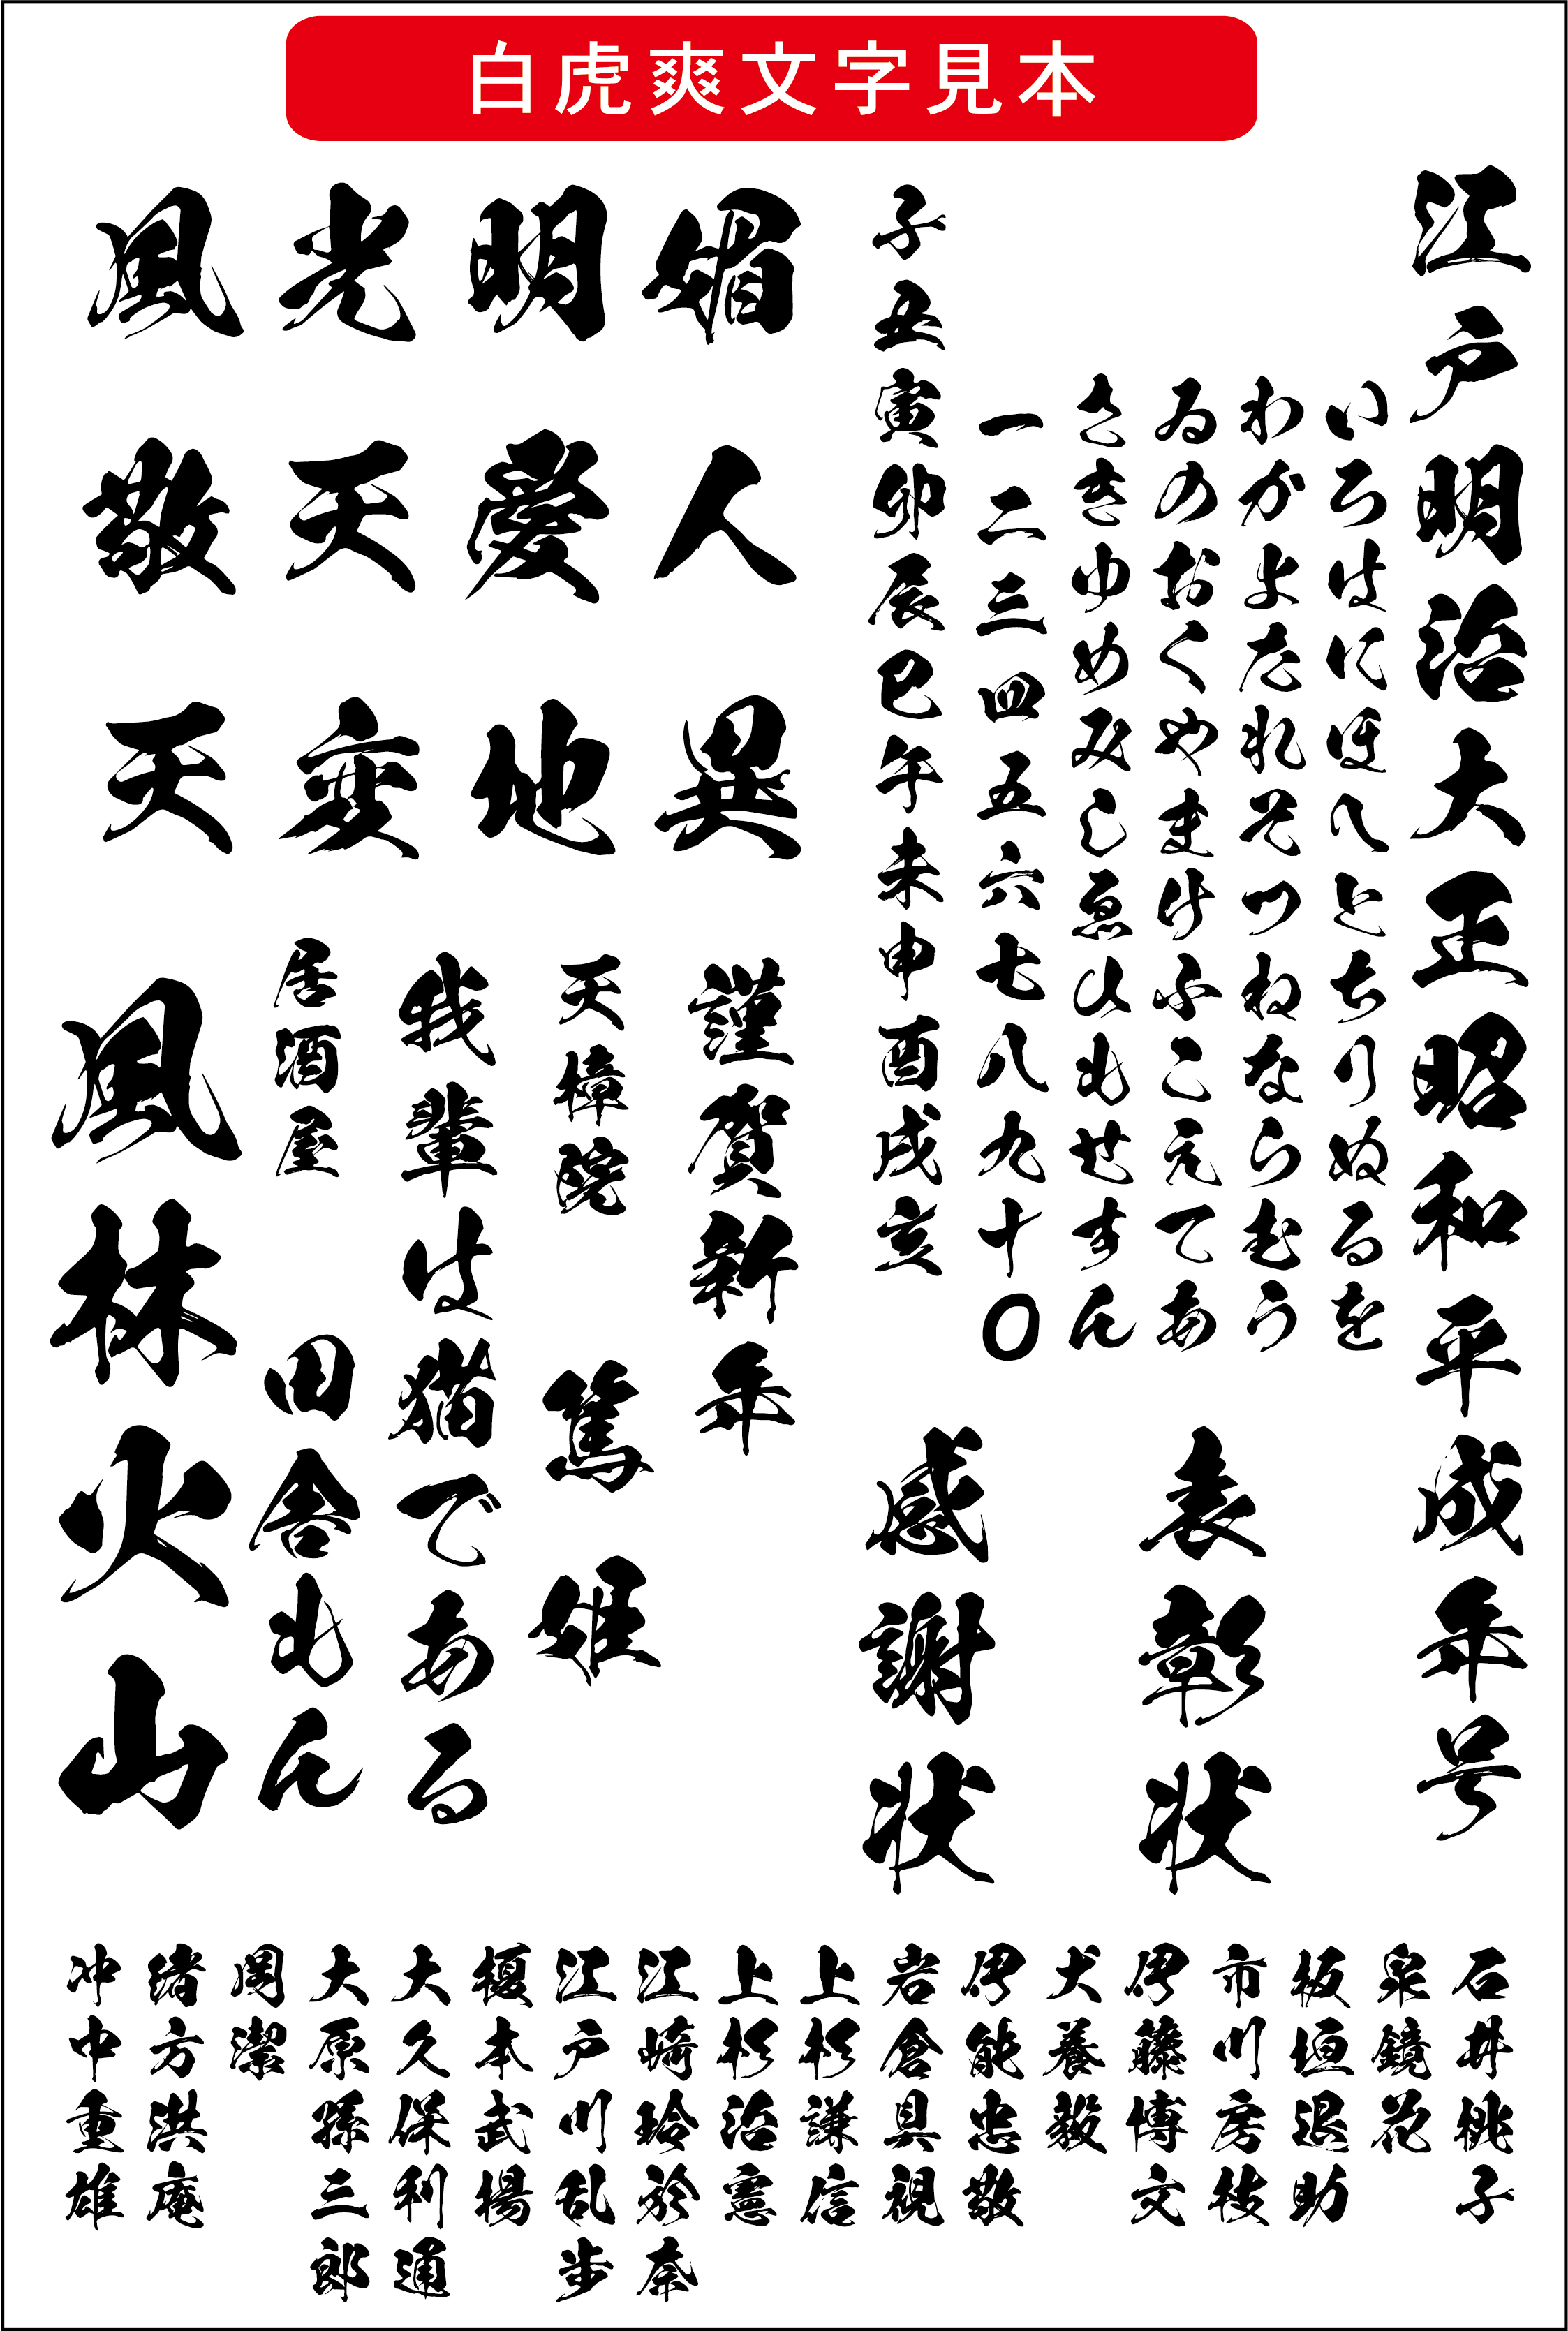 白虎爽文字見本
江戸明治大正昭和平成年号
いろはにほへとちりぬるを
わかよたれそつねならむう
ゐのおくやまけふこえてあ
さきゆめみしゑひもせすん
一二三四五六七八九十〇
子丑寅卯辰巳午未申酉戌亥
表彰状
感謝状
風光明媚
敬天愛人
天変地異
謹賀新年
天樟院
篤姫
我輩は猫である
居酒屋
田舎もん
風林火山
石井桃子
泉鏡花
板垣退助
市川房枝
伊藤博文
犬養毅
伊能忠敬
岩倉具視
上杉謙信
上杉治憲
江崎玲於奈
江戸川乱歩
榎本武揚
大久保利通
大原孫三郎
岡潔
緒方洪庵
沖中重雄